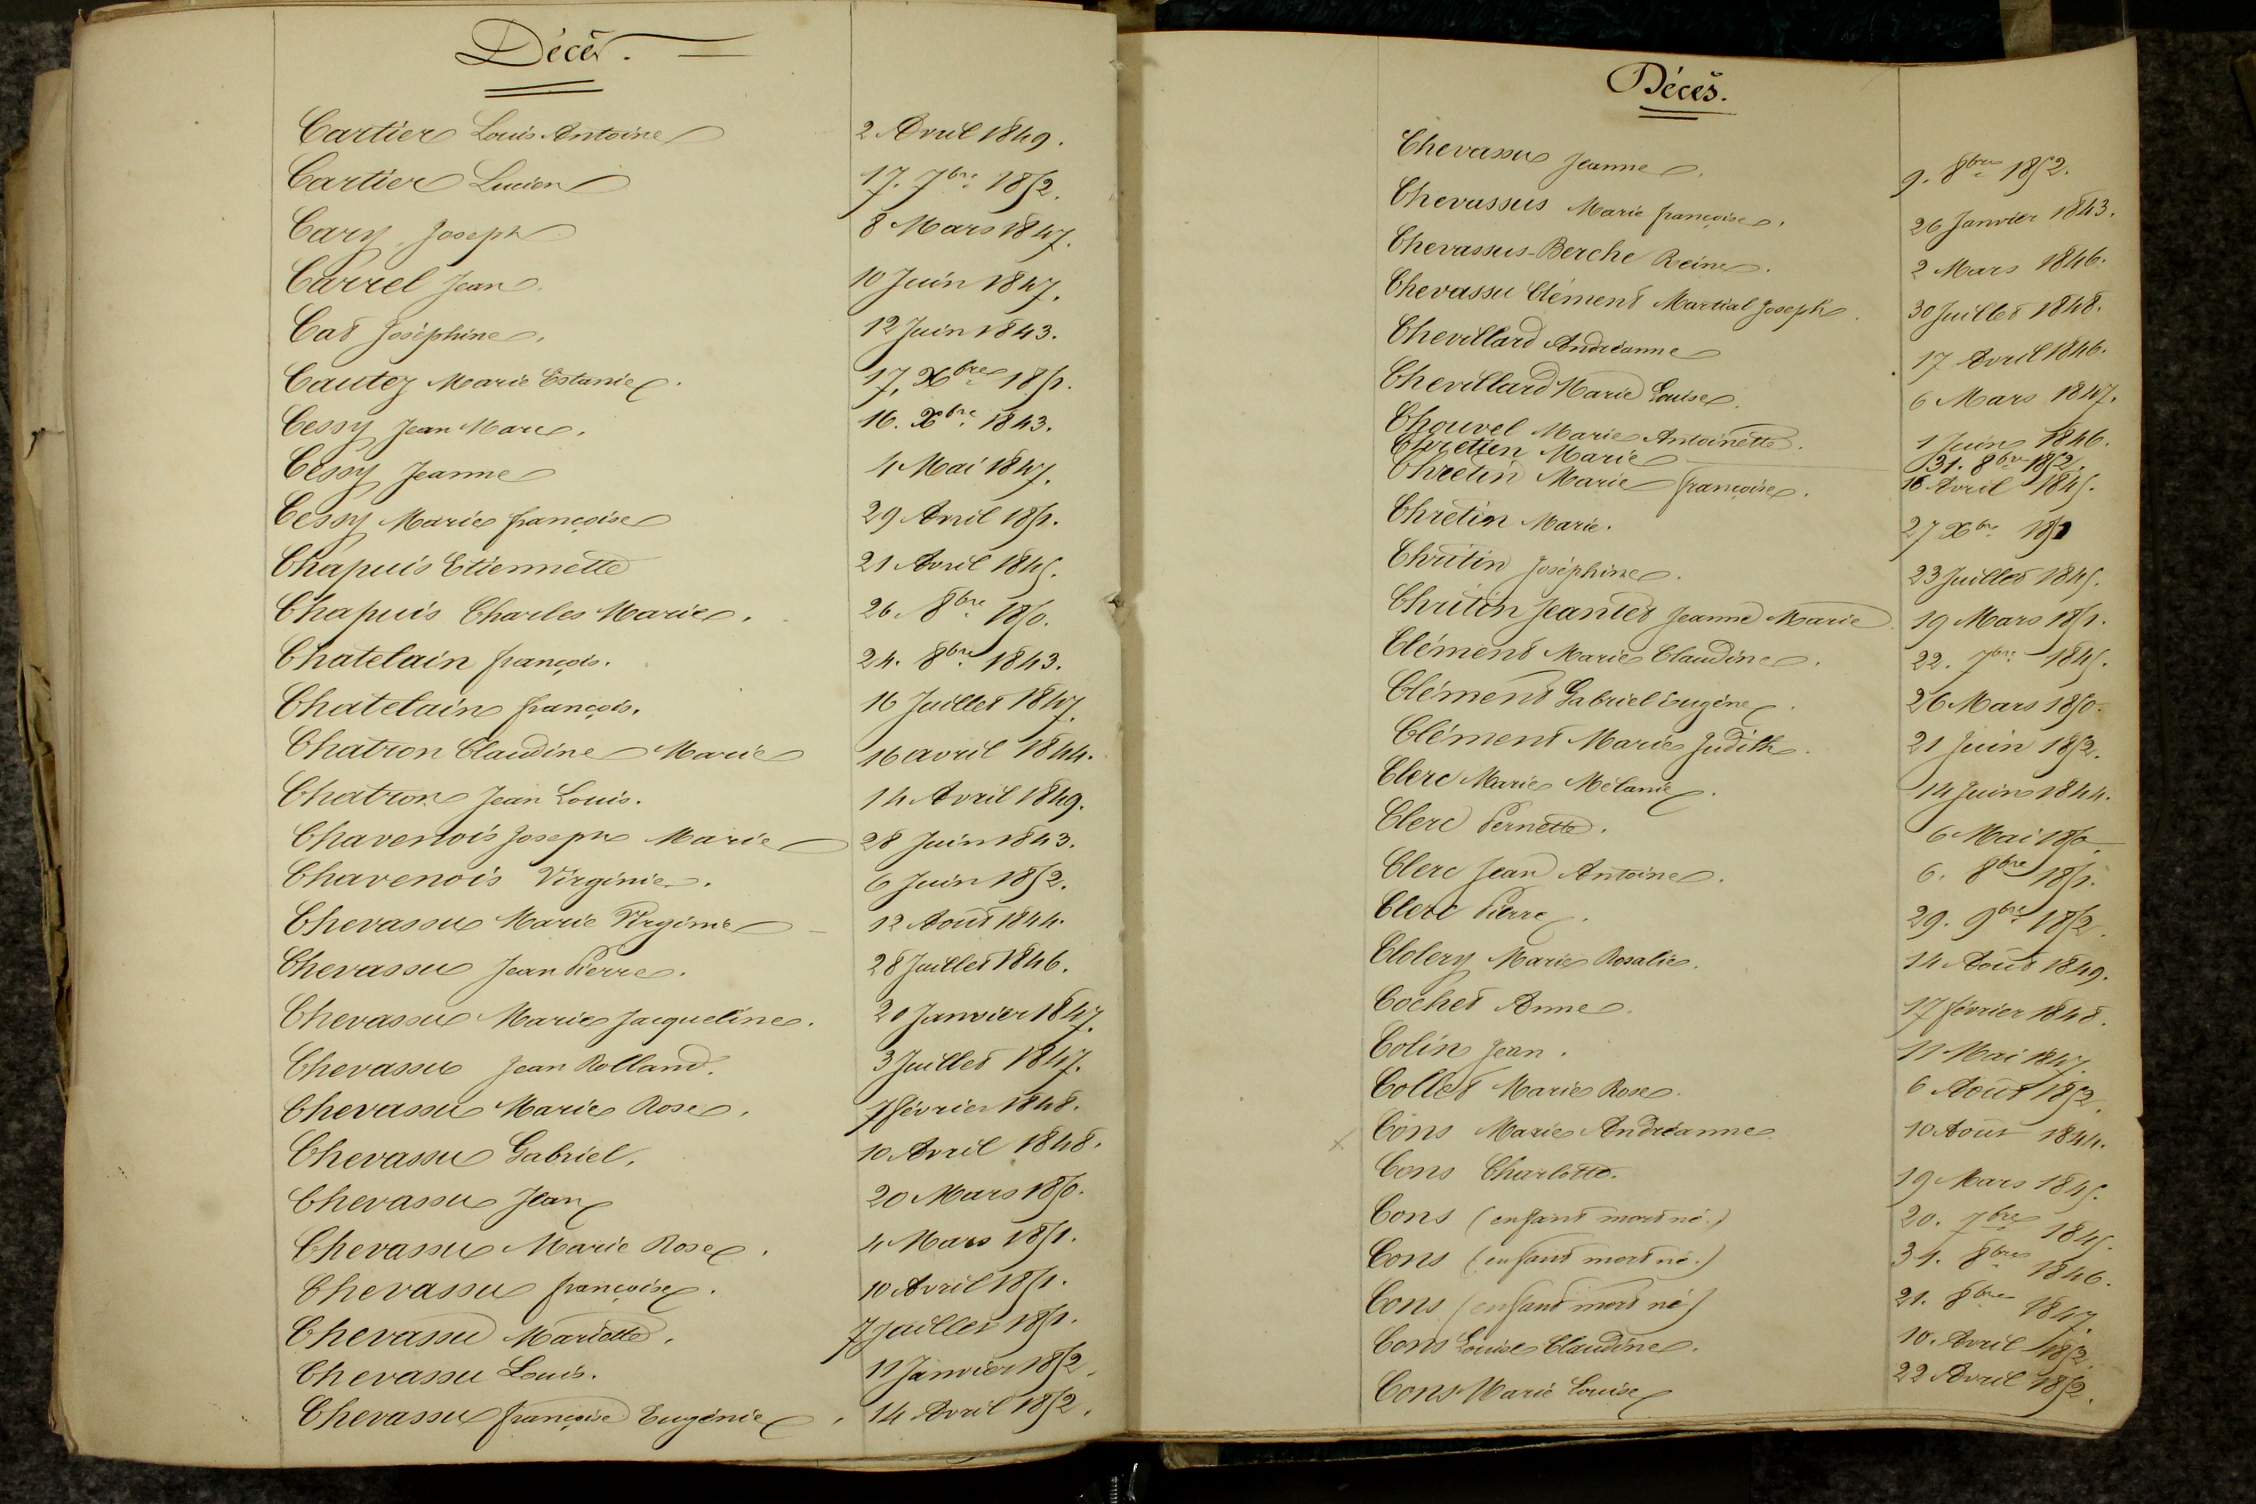 Décès.
Cartier Louis Antoine 2 Avril 1849.
Cartier Lucien 17. 7bre 1852.
Cary Joseph 8 Mars 1847.
Carrel Jean 10 Juin 1847.
Cat Joséphine. 12 Juin 1843.
Cautez Marie Estanie. 17, Xbre 1851.
Cessy Jean Marie. 16. Xbre 1843.
Cessy Jeanne 4 Mai 1847.
Cessy Marie françoise 29 Avril 1851.
Chapuis Etiennette 21 Avril 1845.
Chapuis Charles Marie. 26. 8bre 1850.
Chatelain françois. 24. 8bre 1843.
Chatelain françois. 16 Juillet 1847.
Chatron Claudine Marie 16 avril 1844.
Chatron Jean Louis. 14 Avril 1849.
Chavenois Joseph Marie 28 Juin 1843.
Chavenois Virginie. 6 Juin 1852.
Chevassu Marie Virginie 12 Août 1844.
Chevassu Jean Pierre. 28 Juillet 1846.
Chevassu Marie Jacqueline. 20 Janvier 1847.
Chevassu Jean Rolland. 3 Juillet 1847.
Chevassu Marie Rose. 7 février 1848.
Chevassu Gabriel. 10 Avril 1848.
Chevassu Jean 20 Mars 1850.
Chevassu Marie Rose. 4 Mars 1851.
Chevassu françoise. 10 Avril 1851.
Chevassu Mariette. 7 Juillet 1851.
Chevassu Louis. 11 Janvier 1852.
Chevassu françoise Eugénie. 14 Avril 1852.
Décès.
Chevassu Jeanne. 9. 8bre 1852.
Chevassus Marie françoise. 26 Janvier 1843.
Chevassus-Berche Reine. 2 Mars 1846.
Chevassu Clément Martial Joseph. 30 Juillet 1848.
Chevillard Andréanne 17 Avril 1846.
Chevillard Marie Louise. 6 Mars 1847.
Chouvel Marie Antoinette. 1 Juin 1846.
Chretien Marie 31. 8bre 1852.
Chretin Marie françoise. 16 Avril 1845.
Chretin Marie. 27 Xbre 1851
Chritin Joséphine. 23 Juillet 1845.
Chritin Jeantet Jeanne Marie 19 Mars 1851.
Clément Marie Claudine. 22. 7bre 1845.
Clément Gabriel Eugène. 26 Mars 1850.
Clément Marie Judith. 21 Juin 1852.
Clerc Marie Mélanie. 14 Juin 1844.
Clerc Pernette. 6 Mai 1850.
Clerc Jean Antoine. 6. 8bre 1851.
Clerc Pierre. 29. 9bre 1852.
Clolery Marie Rosalie. 14 Août 1849.
Cochet Anne. 17 février 1848.
Colin Jean. 11 Mai 1847.
Collet Marie Rose. 6 Août 1852.
x Cons Marie Andréanne 10 Août 1844.
Cons Charlotte. 19 Mars 1845.
Cons (enfant mort né.) 20. 7bre 1845.
Cons (enfant mort né.) 31. 8bre 1846.
Cons (enfant mort né) 21. 8bre 1847.
Cons Louise Claudine. 10. Avril 1852.
Cons Marie Louise 22 Avril 1852.